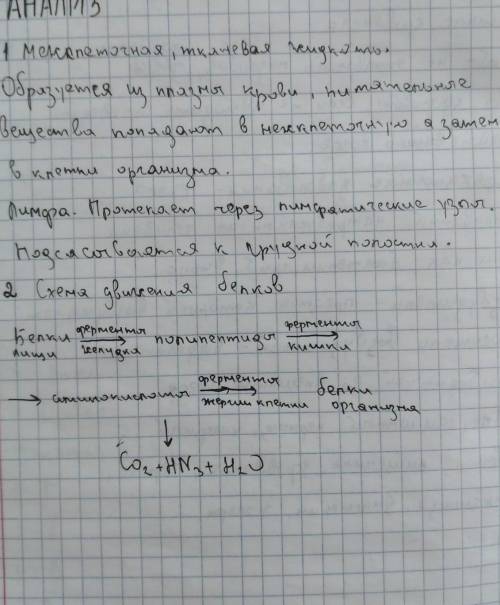 АНАЛИЗ
1 Межклеточная, тканевая жидкость.
Образуется из плазмы крови, питательные
вещества попадают в межклеточную а затем
в клетки организма.
Лимфа. Протекает через лимфатические узлы.
Подсасывается к грудной полости.
2 Схема движения белков
Белки пищи ферменты желудка полипептиды ферменты кишки
→ аминокислоты ферменты клетки белки организма
↓
Co2 + HN3 + H2O